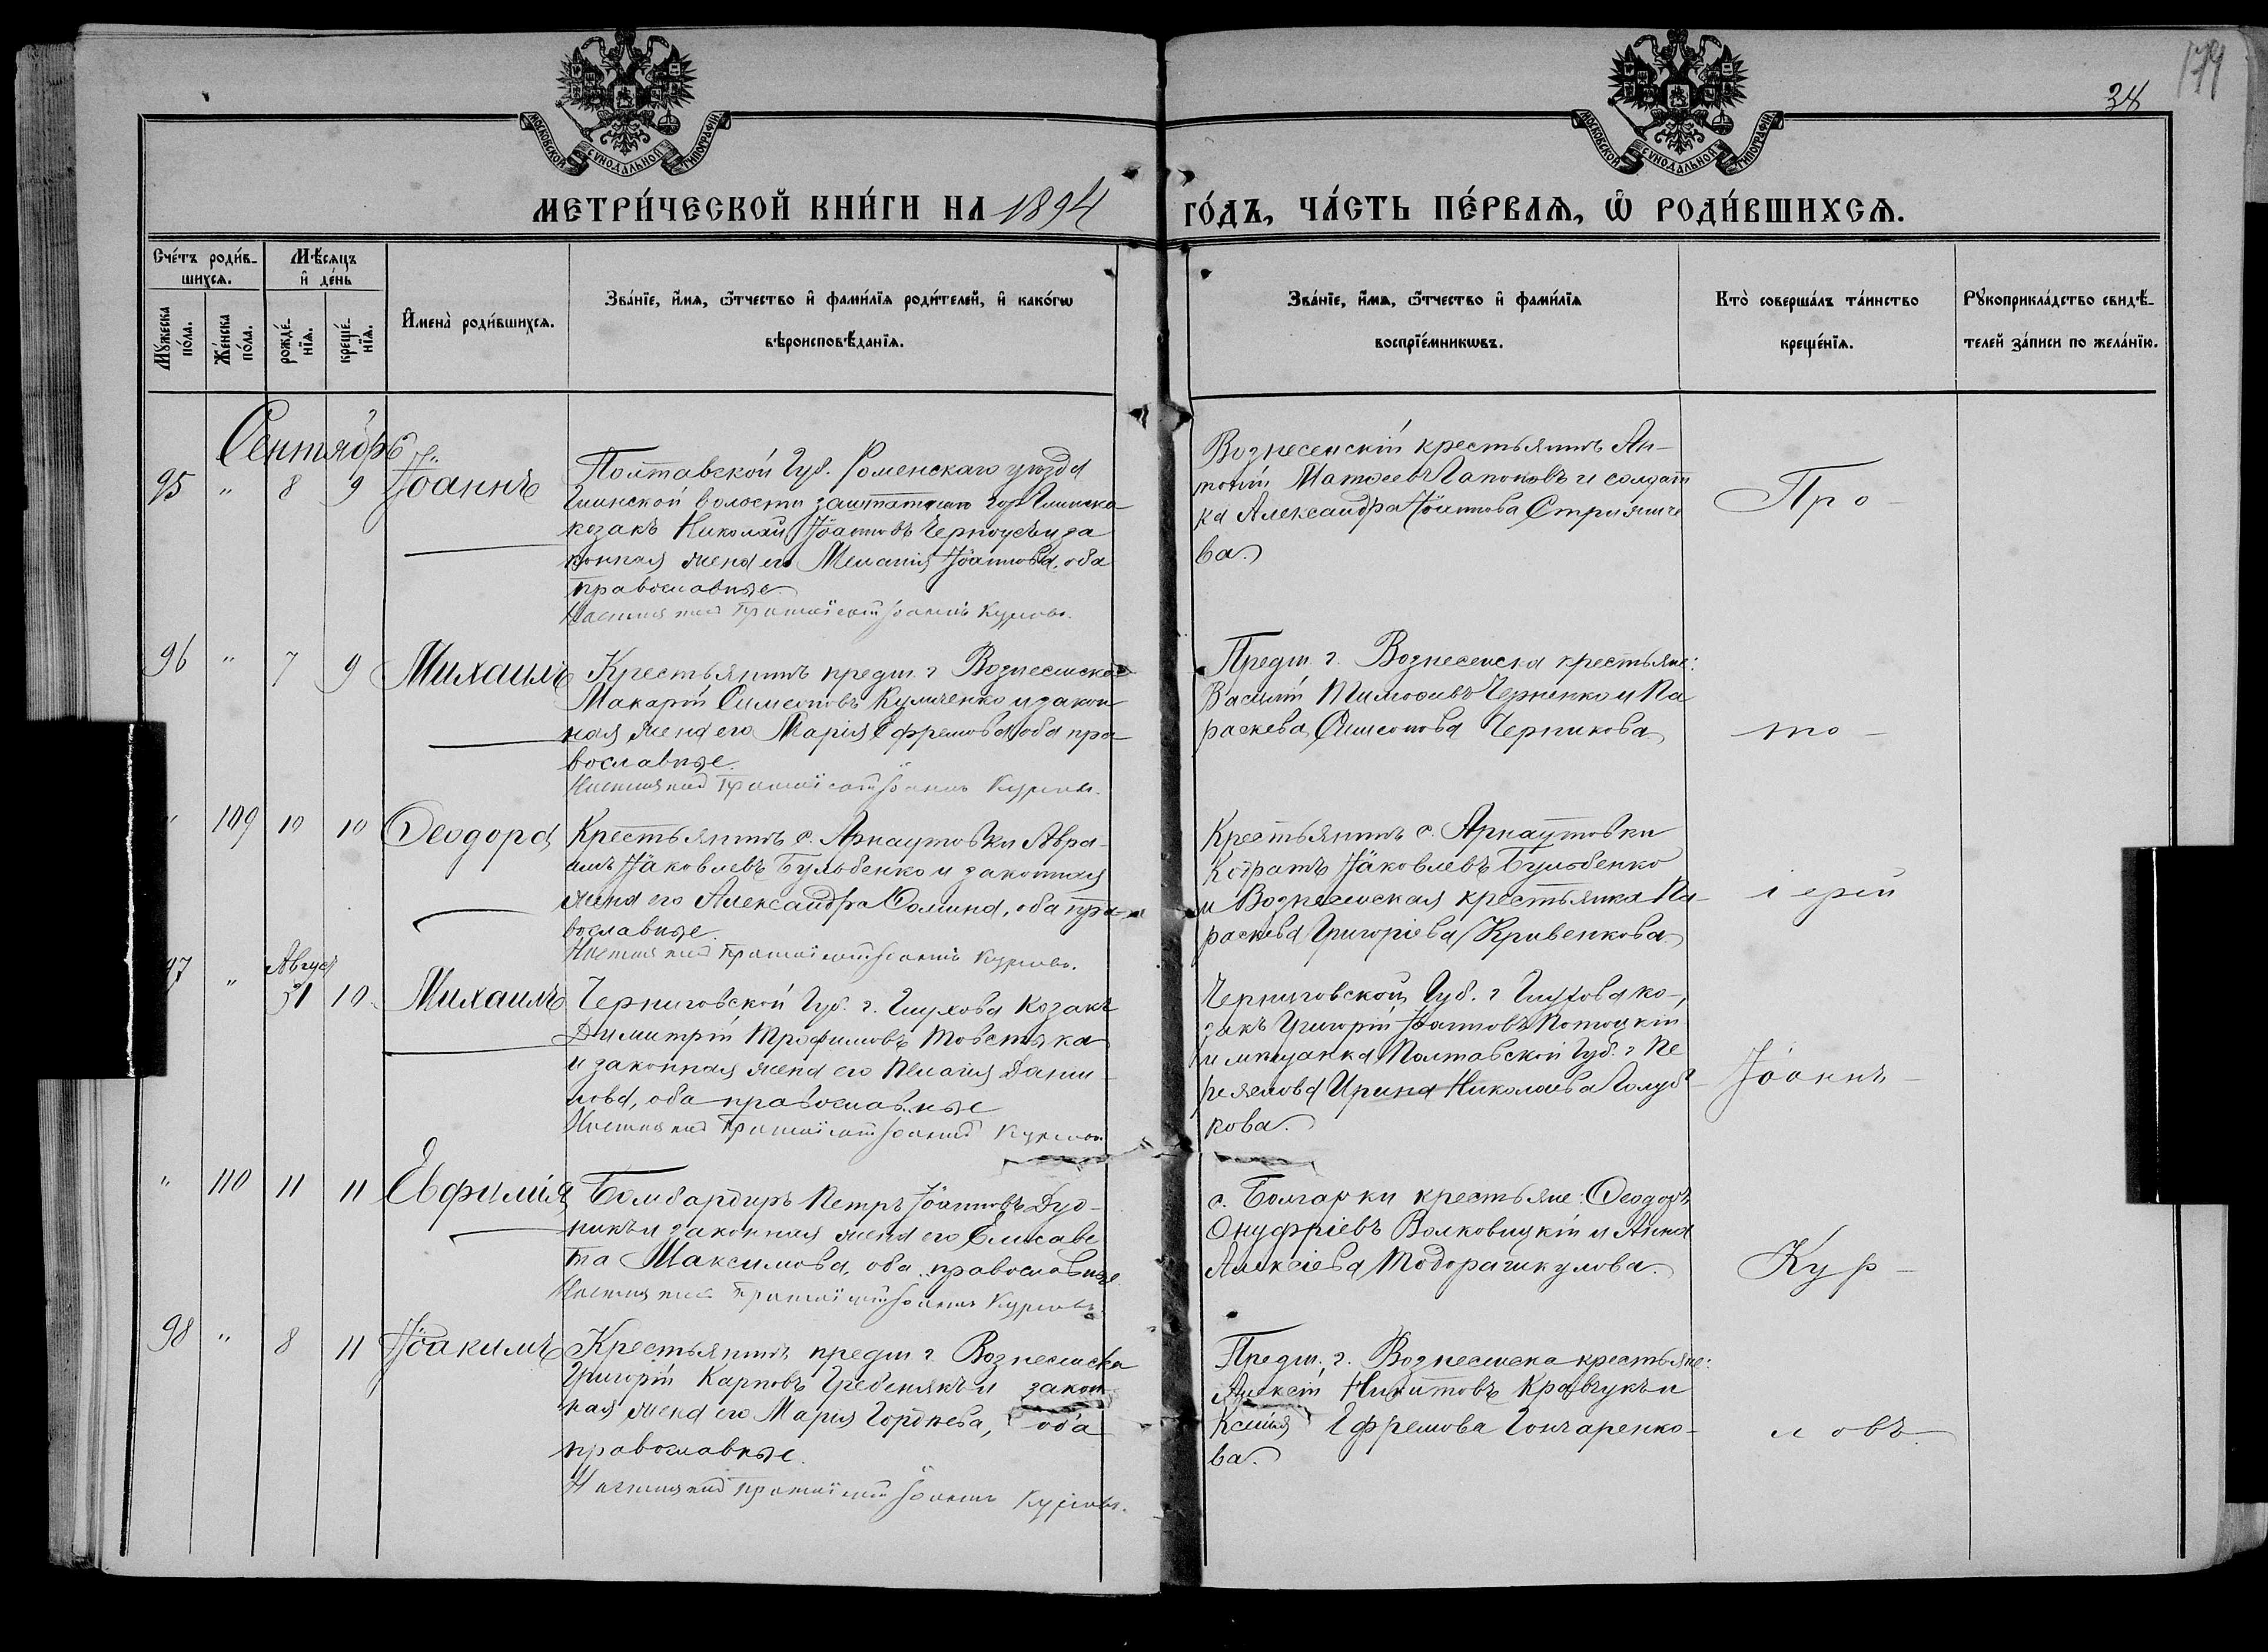 174
38
МОСКОВСКОЙ СУНОДАЛЬНОЙ ТИПОГРАФІИ
МОСКОВСКОЙ СУНОДАЛЬНОЙ ТИПОГРАФІИ
МЕТРИ́ЧЕСКОЙ КНИ́ГИ НА 1894 ГО́ДЪ, ЧА́СТЬ ПЕ́РВАѦ, Ѡ҆ РОДИ́ВШИХСѦ.
Сче́тъ роди́в-
шихсѧ.
Мꙋ́жеска по́ла.
Же́нска по́ла.
Мѣ́сѧцъ
и҆ де́нь
рожде́-
нїѧ.
креще́-
нїѧ.
И҆мена̀ роди́вшихсѧ.
Зва́нїе, и҆́мѧ, ѻ҆́тчество и҆ фами́лїѧ роди́телей, и҆ како́гѡ
вѣроисповѣ́данїѧ.
Зва́нїе, и҆́мѧ, ѻ҆́тчество и҆ фами́лїѧ
воспрїе́мникѡвъ.
Кто̀ соверша́лъ та́инство
креще́нїѧ.
Рꙋкоприкла́дство свидѣ́-
телей за́писи по жела́нїю.
Сентябрь
95 " 8 9 Іоаннъ
Полтавской Губ. Роменскаго уѣзда
Глинской волости заштатнаго гор. Глинска
козакъ Николай Іоанновъ Черноусъ и за
конная жена его Меланія Іоаннова, оба
православные
Настоятель Протоіерей Іоаннъ Курловъ.
Вознесенскій крестьянинъ Ан-
тоній Матѳеевъ Лапоновъ и солдат
ка Александра Іоаннова
ва.
Про-
96 " 7 9 Михаилъ
Крестьянинъ предм. г. Вознесенска
Макарій Симеоновъ Куличенко и закон
ная жена его Марія Ефремова, оба пра-
вославные.
Настоятель Протоіерей Іоаннъ Курловъ.
Предм. г. Вознесенска крестьяне:
Василій Тимоѳеевъ Черненко и Па
раскева Симеонова Черникова
то-
" 109 10 10 Ѳеодора
Крестьянинъ с. Арнаутовки Авра-
амъ Іаковлевъ Бульбенко и законная
жена его Александра Ѳомина, оба пра-
вославные.
Настоятель Протоіерей Іоаннъ Курловъ.
Крестьянинъ с. Арнаутовки
Кодратъ Іаковлевъ Бульбенко
и Вознесенская крестьянка Па-
раскева Григоріева Кривенкова.
іерей
Август
97 " 31 10 Михаилъ
Черниговской Губ. г. Глухова козакъ
Димитрій Трофимовъ Товстяка
и законная жена его Пелагія Дани-
лова, оба православные
Настоятель Протоіерей Іоаннъ Курловъ
Черниговской Губ. г. Глухова ко-
закъ Григорій Іоанновъ Потоцкій
и мѣщанка Полтавской Губ. г. Пе
реяслова Ирина Николаева Голуб-
кова.
Іоаннъ-
" 110 11 11 Евфимія
Бомбардиръ Петръ Іоанновъ Дуд-
никъ и законная жена его Елисаве
та Максимова, оба православные
Настоятель Протоіерей Іоаннъ Курловъ
с. Болгарки крестьяне: Ѳеодоръ
Онуфріевъ Волковицкій и Анна
Алексіева Тодорашкулова.
Кур-
98 " 8 11 Іоакимъ
Крестьянинъ предм. г. Вознесенска
Григорій Карповъ Гребенякъ и закон
ная жена его Марія Гордѣева, оба
православные.
Настоятель Протоіерей Іоаннъ Курловъ.
Предм. г. Вознесенска крестьяне:
Алексій Никитовъ Кравчукъ и
Ксенія Ефремова Гончаренко-
ва.
ловъ